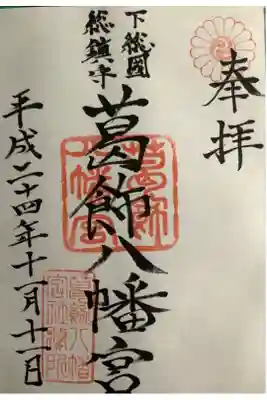 奉拝
下総國
総鎮守
葛飾八幡宮
平成二十四年十一月十一日
葛飾八幡宮
葛飾八幡宮社務所